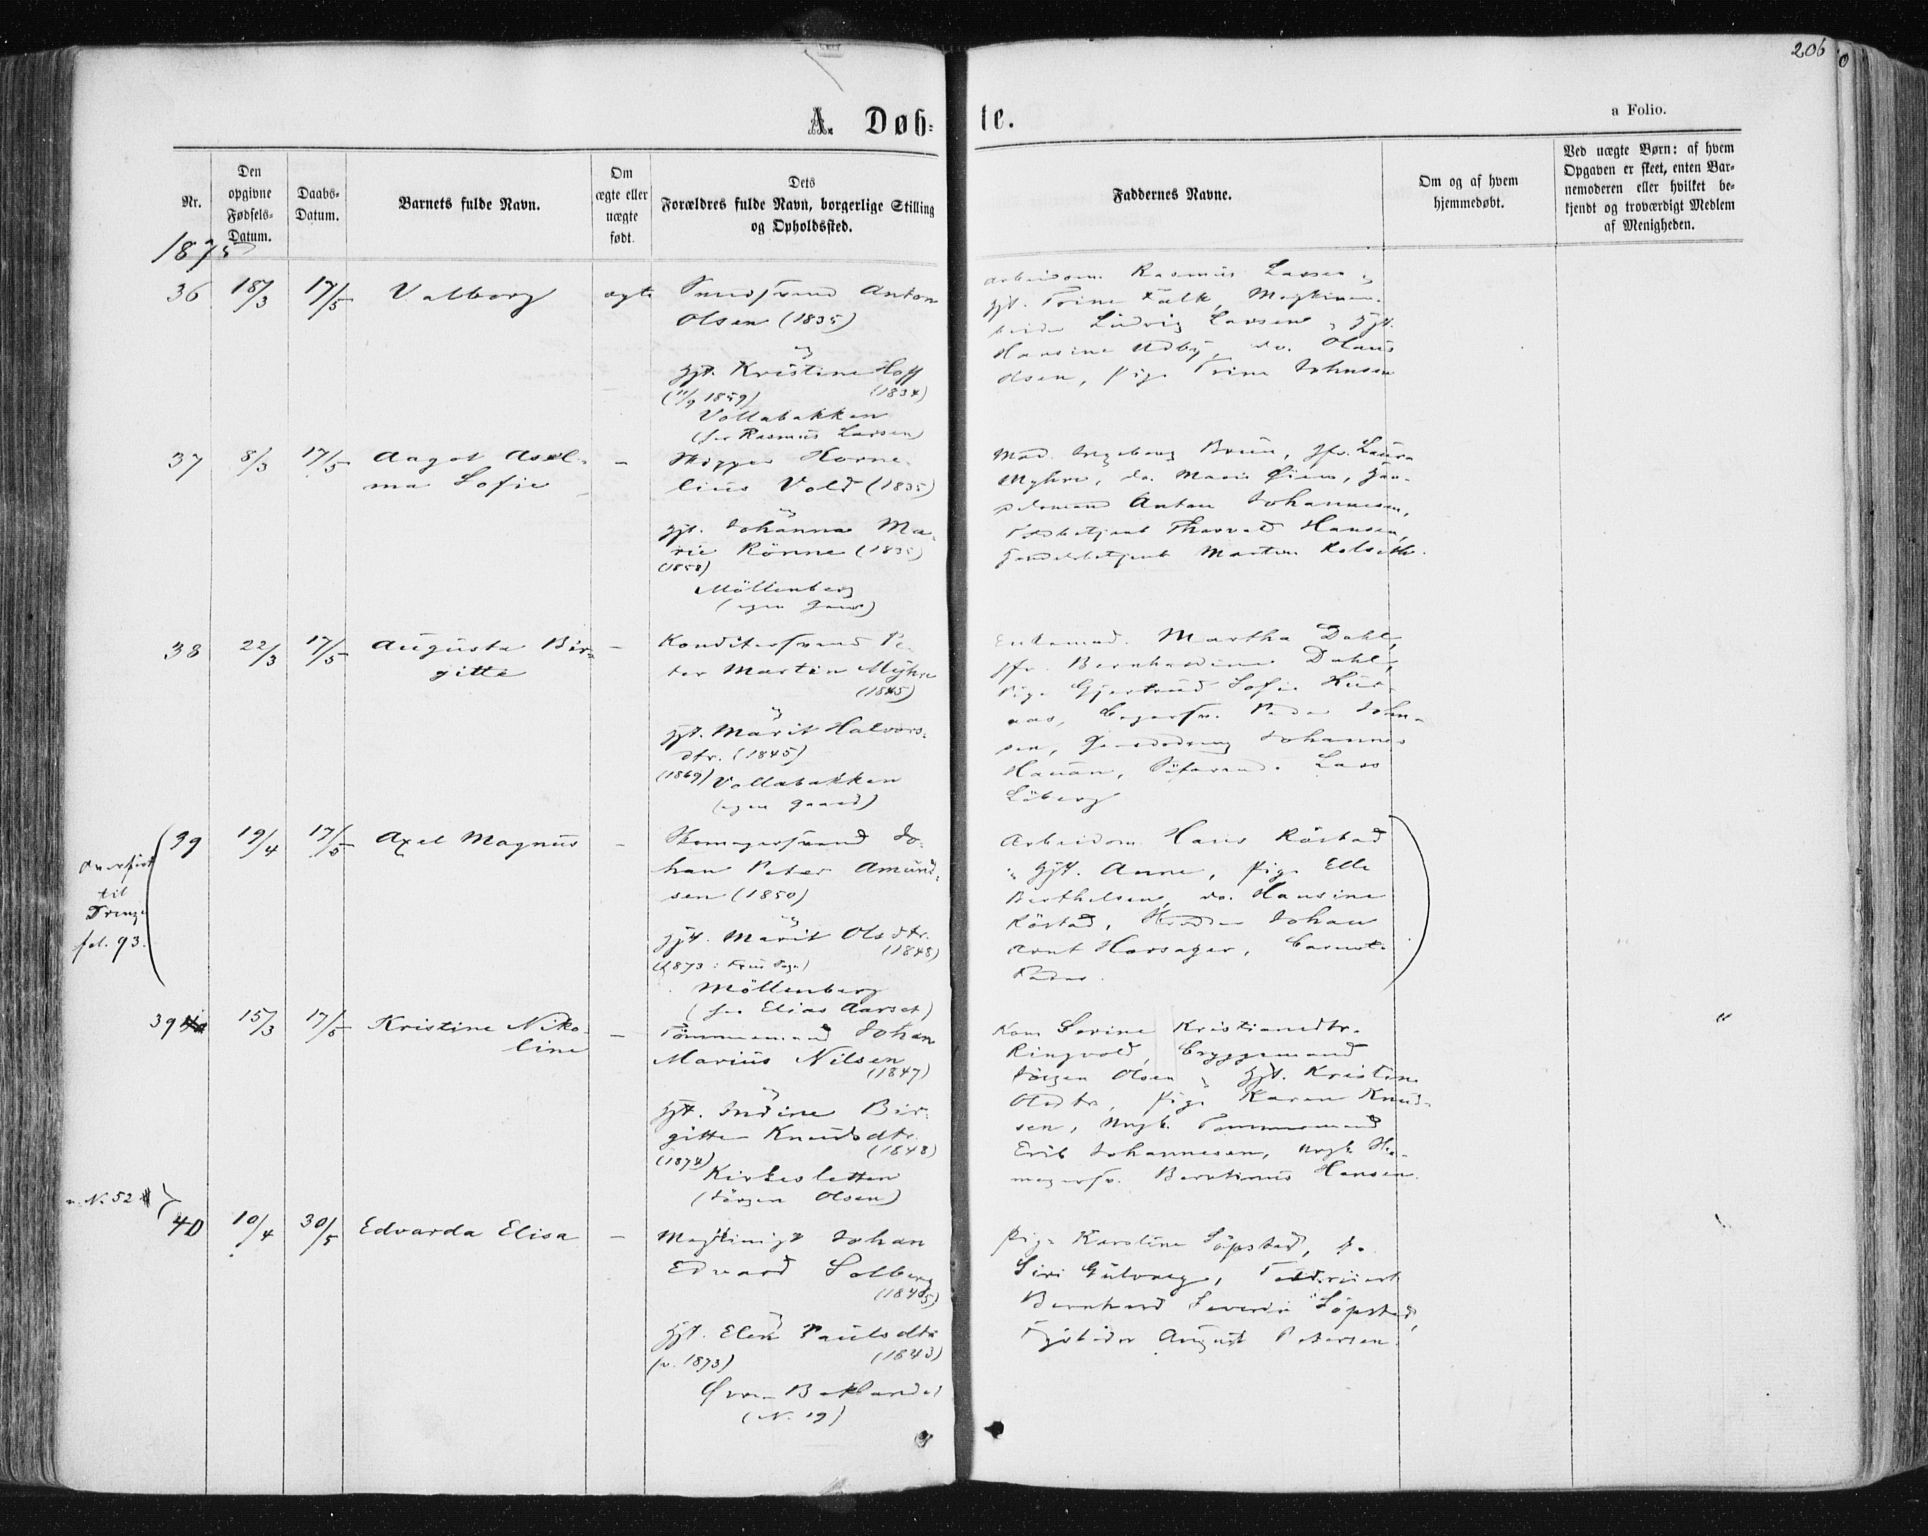 206
A. Døb-
te.
a Folio.
Nr.
Den
opgivne
Fødsels-
Datum.
Daabs-
Datum.
Barnets fulde Navn.
Om
ægte eller
uægte
født.
Dets
Forældres fulde Navn, borgerlige Stilling
og Opholdssted.
Faddernes Navne.
Om og af hvem
hjemmedøbt.
Ved uægte Børn: af hvem
Opgaven er skeet, enten Bar-
nemoderen eller hvilket be-
kjendt og troværdigt Medlem
af Menigheden.
1875
36 18/3 17/5 Valborg ægte
Anton
Olsen (1835)
og
gjt. Kristine Hoff
(11/9 1859) (1834)
Vollabakken
(hos Rasmus Larsen)
Arbeidsm. Rasmus Larsen
gjt. Trine Falk,
Ludvig Larsen og gjt.
Hansine Udby, do. Olaus
Olsen, Pige Trine Johnsen
37 8/3 17/5 Aagot Axel-
ma Sofie
Skipper Korne-
lius Vold (1835)
og
gjt. Johanna Ma-
rie Rönne (1835)
(1858)
Möllenberg
(egen Gaard)
Mad. Ingeborg Bruun, jfr. Laura
Myhre, do. Marie Öien,
Anton Johannesen,
Thorvald Hansen,
Martin Kolseth.
38 22/3 17/5 Augusta Bir-
gitte
Konditorsvend Pe-
ter Martin Myhre
(1845)
og
gjt. Marit Halvors-
dtr. (1845)
(1869) Vollabakken
(egen Gaard)
Enkemad. Martha Dahl,
jfr. Bernhardine Dahl,
Pige Gjertrud Sofie
Peder John-
sen, Johannes
Hauan, Lars
Löberg
Overfört
til
fol. 93.
39 19/4 17/5 Axel Magnus
Skomagersvend Jo-
han Peter Amund-
sen (1850)
og
gjt. Marit Olsdtr.
(1848)
Möllenberg
(hos Elias Aarset)
Arbeidsm. Hans Röstad
og gjt. Anne, Pige Elle
Berthelsen, do. Hansine
Röstad, Johan
Arnt Horsager, Barnets
Fader.
39 15/3 17/5 Kristine Niko-
line
Tömmermand Johan
Marius Nilsen
(1847)
og
gjt. Indine Bir-
gitte Knudsdtr.
(1874) (1848)
Kirkesletten
(Jörgen Olsen)
Kone Serine Kristiansdtr.
Ringvold, Bryggemand
Jörgen Olsen og gjt. Kristine
Olsdtr, Pige Karen Knud-
sen, Ungk. Tömmermand
Erik Johannesen, Ungk. Sko-
magersv. Berntinus Hansen.
"
v. N. 52
40 10/4 30/5 Edvarda Elisa
Johan
Edvard Solberg
(1845)
og
gjt. Elen Paulsdtr
(v. 1873) (1843)
Øvre Baklandet
(N. 19)
Pige Karoline Söpstad, do.
Siri Gulvaag,
Bernhard Severin Söpstad,
August Petersen.